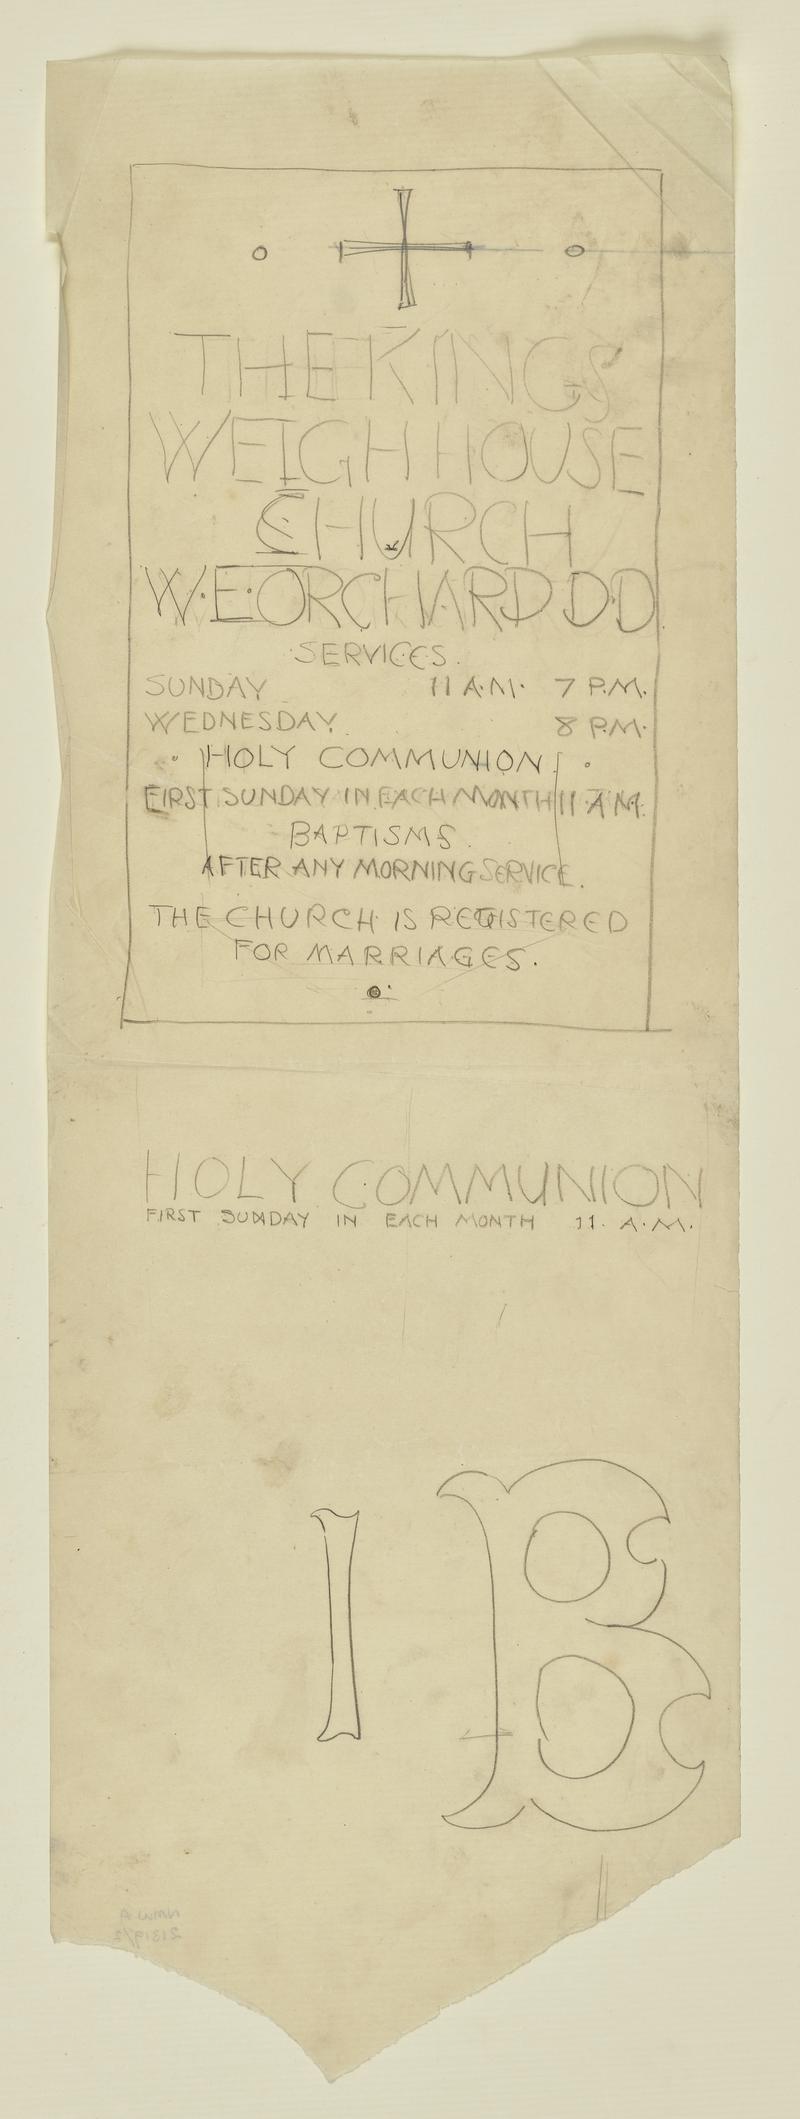 THE KINGS
WEIGH HOUSE
CHURCH
W.E.ORCHARD D.D.
SERVICES.
SUNDAY 11 A.M. 7 P.M.
WEDNESDAY. 8 P.M.
HOLY COMMUNION
FIRST SUNDAY IN EACH MONTH 11 A.M.
BAPTISMS.
AFTER ANY MORNING SERVICE.
THE CHURCH IS REGISTERED
FOR MARRIAGES.
HOLY COMMUNION
FIRST SUNDAY IN EACH MONTH 11. A.M.
I B
NMW A